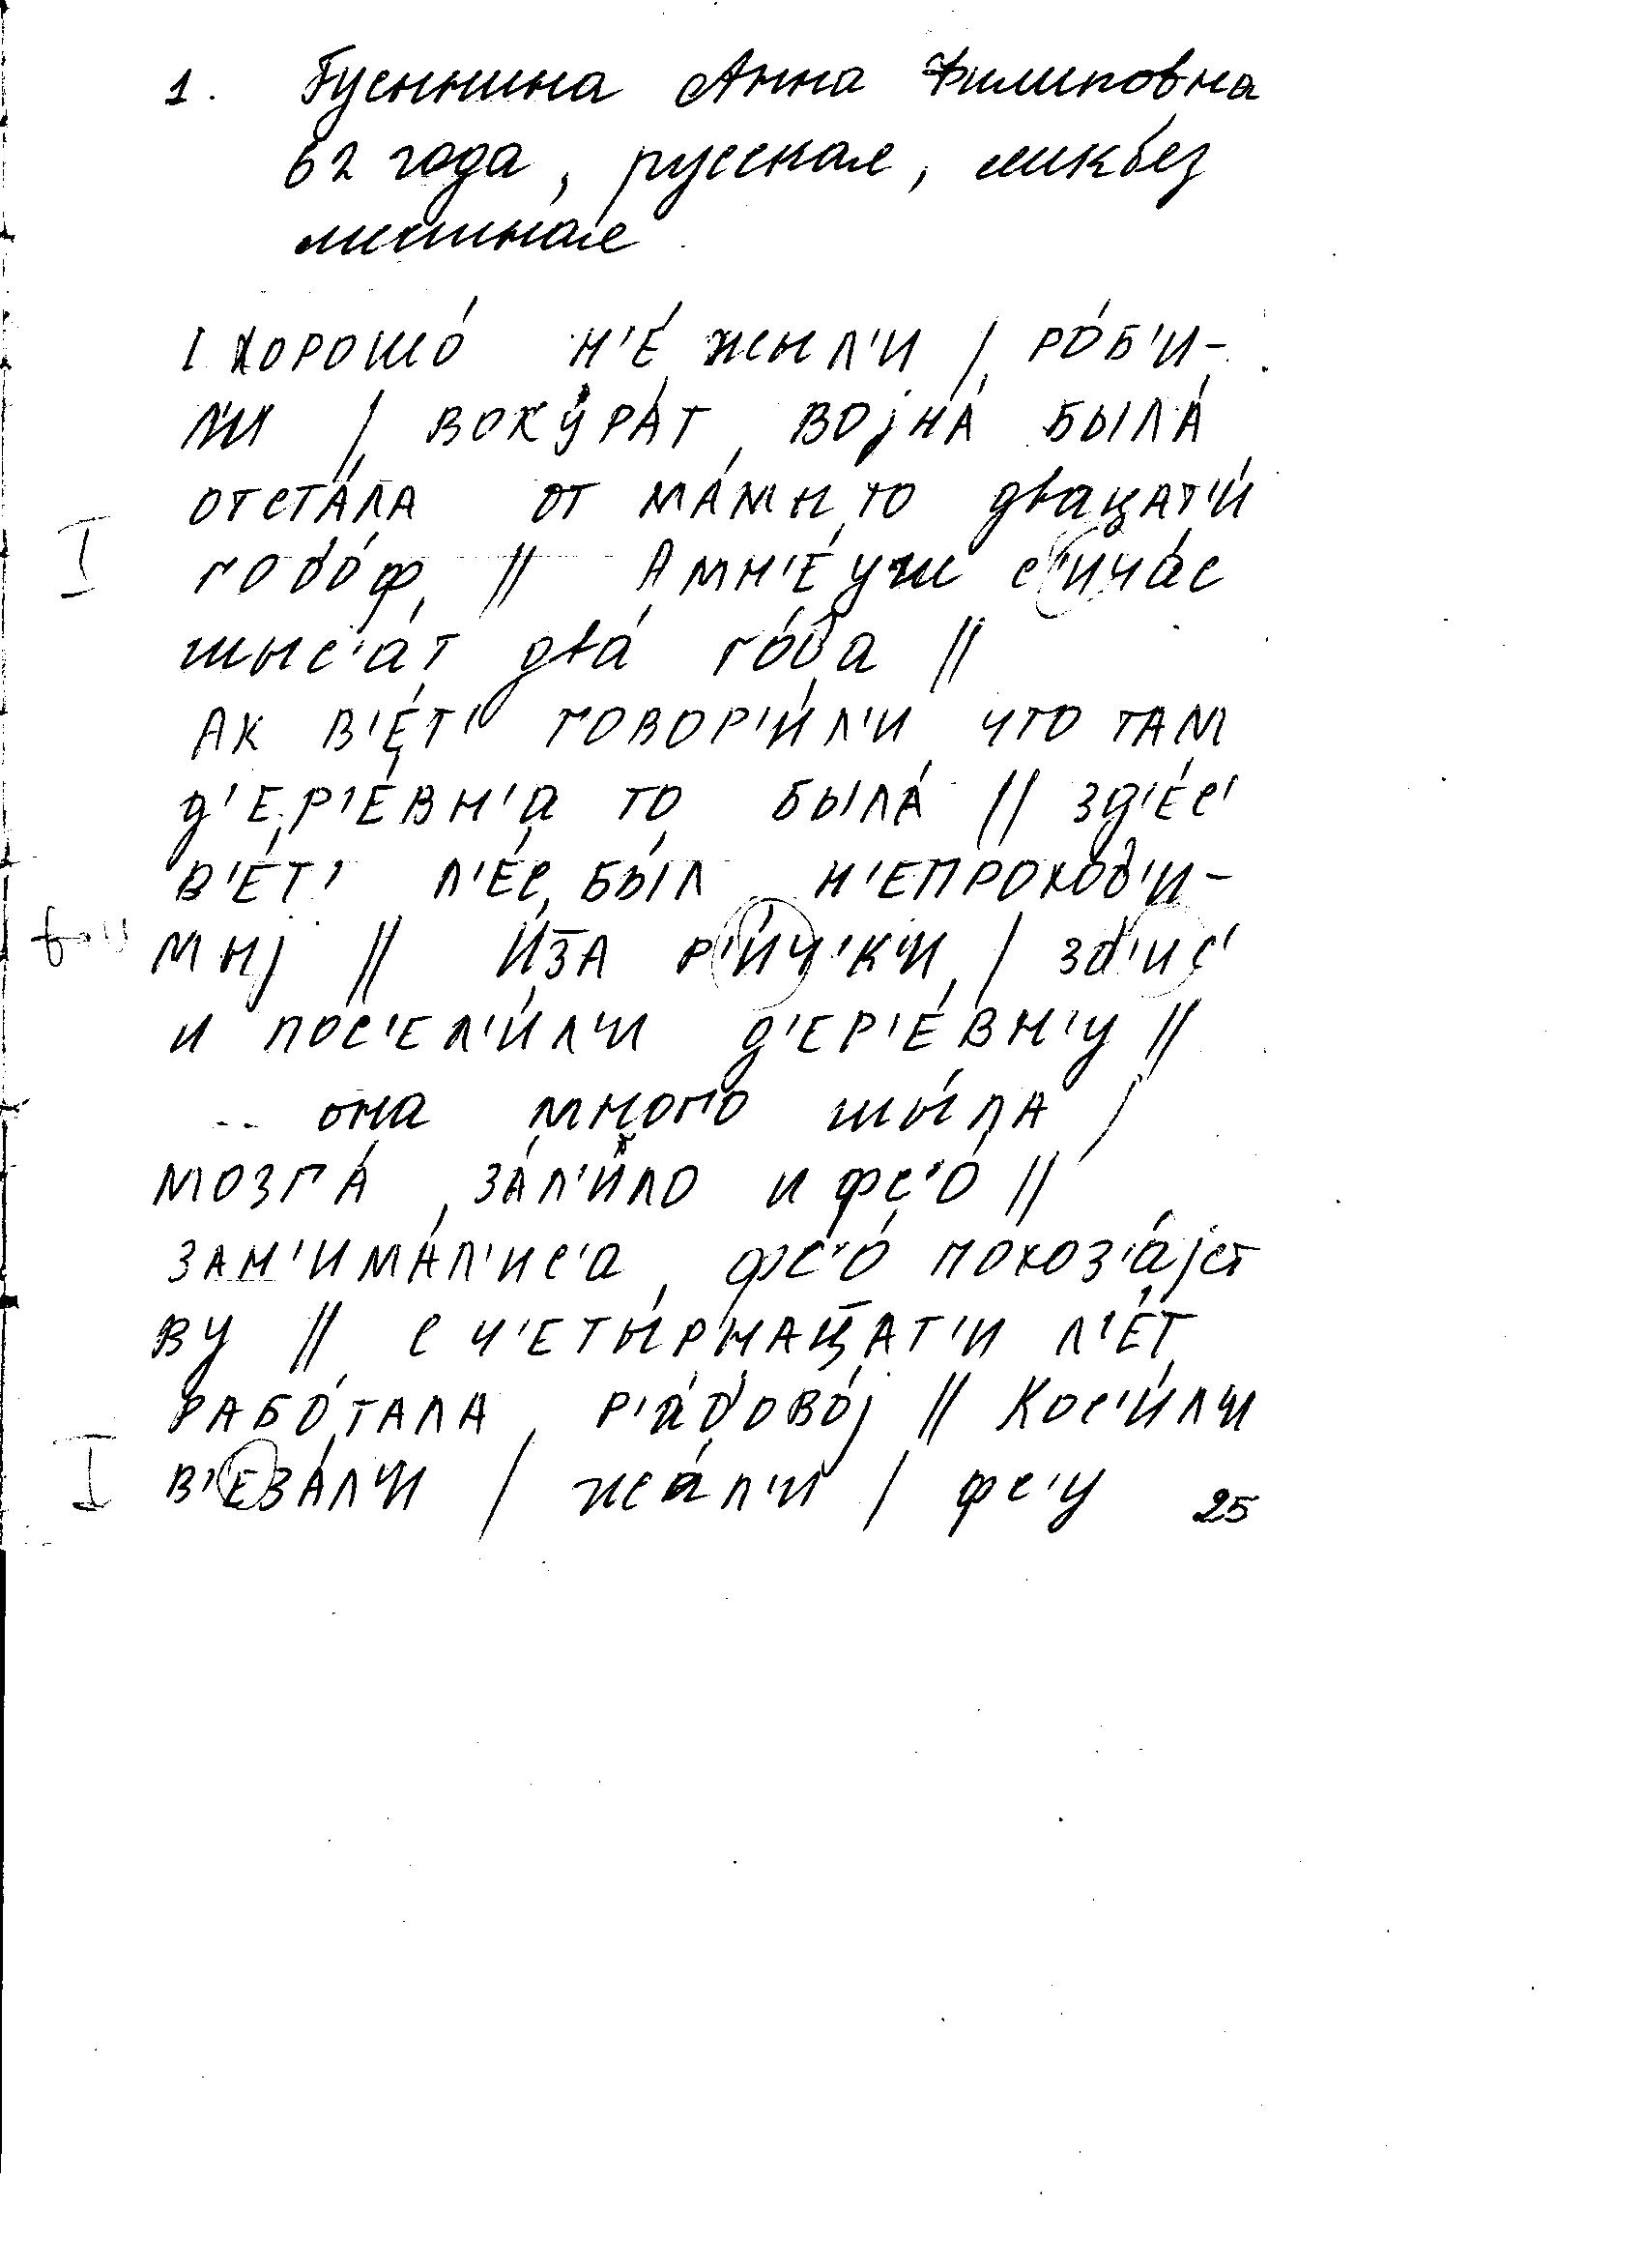 1. Гусьнина Анна Филиповна
62 года, русская, ликбез
местная
I хорошо́ н'е́ жыл'и / ро́б'и-
л'и / вокура́т војна́ была́
отста́ла от ма́мы то двацат'и́
годо́ф // А мн'е́ уж с'ича́с
шыс'а́т два́ го́да //
Ак в'е́т' говор'и́л'и что там
д'ер'е́вн'а то была́ // зд'е́с'
в'е́т' л'е́с бы́л н'епроход'и-
мыј // И́за р'и́ч'к'и / зд'ис'
и пос'ел'и́л'и д'ер'е́вн'у //
.. она много жы́ла /
мозга́ за́л'и́ло и фс'о́ //
зан'има́л'ис'а фс'о́ по хоз'а́јст
ву // с ч'еты́рнацат'и л'е́т
рабо́тала р'адово́ј // Кос'и́л'и
в'еза́л'и / жа́л'и / фс'у 25
I
I